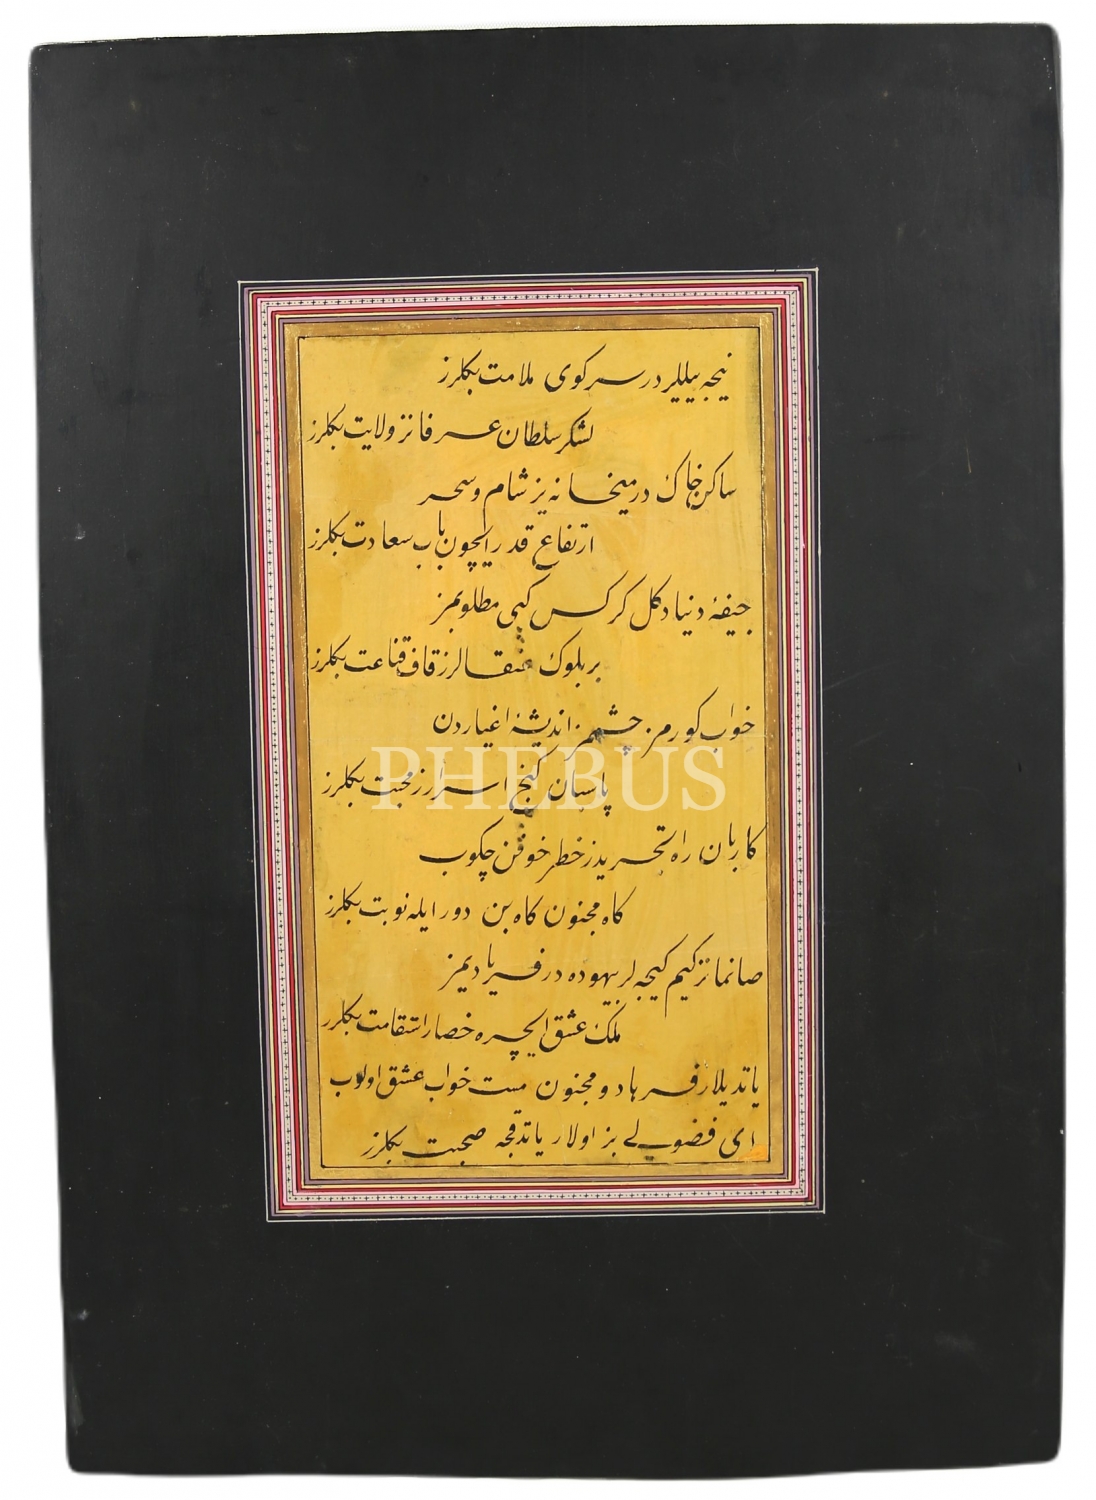 نیجه ییللر در سر کوی ملامت بکلرز
لشکر سلطان عرفانز ولایت بکلرز
ساکن خاک در میخانه یز شام و سحر
ارتفاع قدر ایچون باب سعادت بکلرز
جیفهٔ دنیا دکل کرکس کبی مطلوبمز
بر بلوک عنقالرز قاف قناعت بکلرز
خواب کورمز چشممز اندیشهٔ اغیاردن
پاسبان کنج اسرارز محبت بکلرز
کاربان راه تجریدز خطر خوفن چکوب
کاه مجنون کاه بن دور ایله نوبت بکلرز
صانمانز کیم کیجه لر بیهوده در فریادیمز
ملک عشق ایچره حصار استقامت بکلرز
یاتدیلار فرهاد و مجنون مست خواب عشق اولوب
ای فضولی بز اولار یاتدقجه صحبت بکلرز
PHEBUS